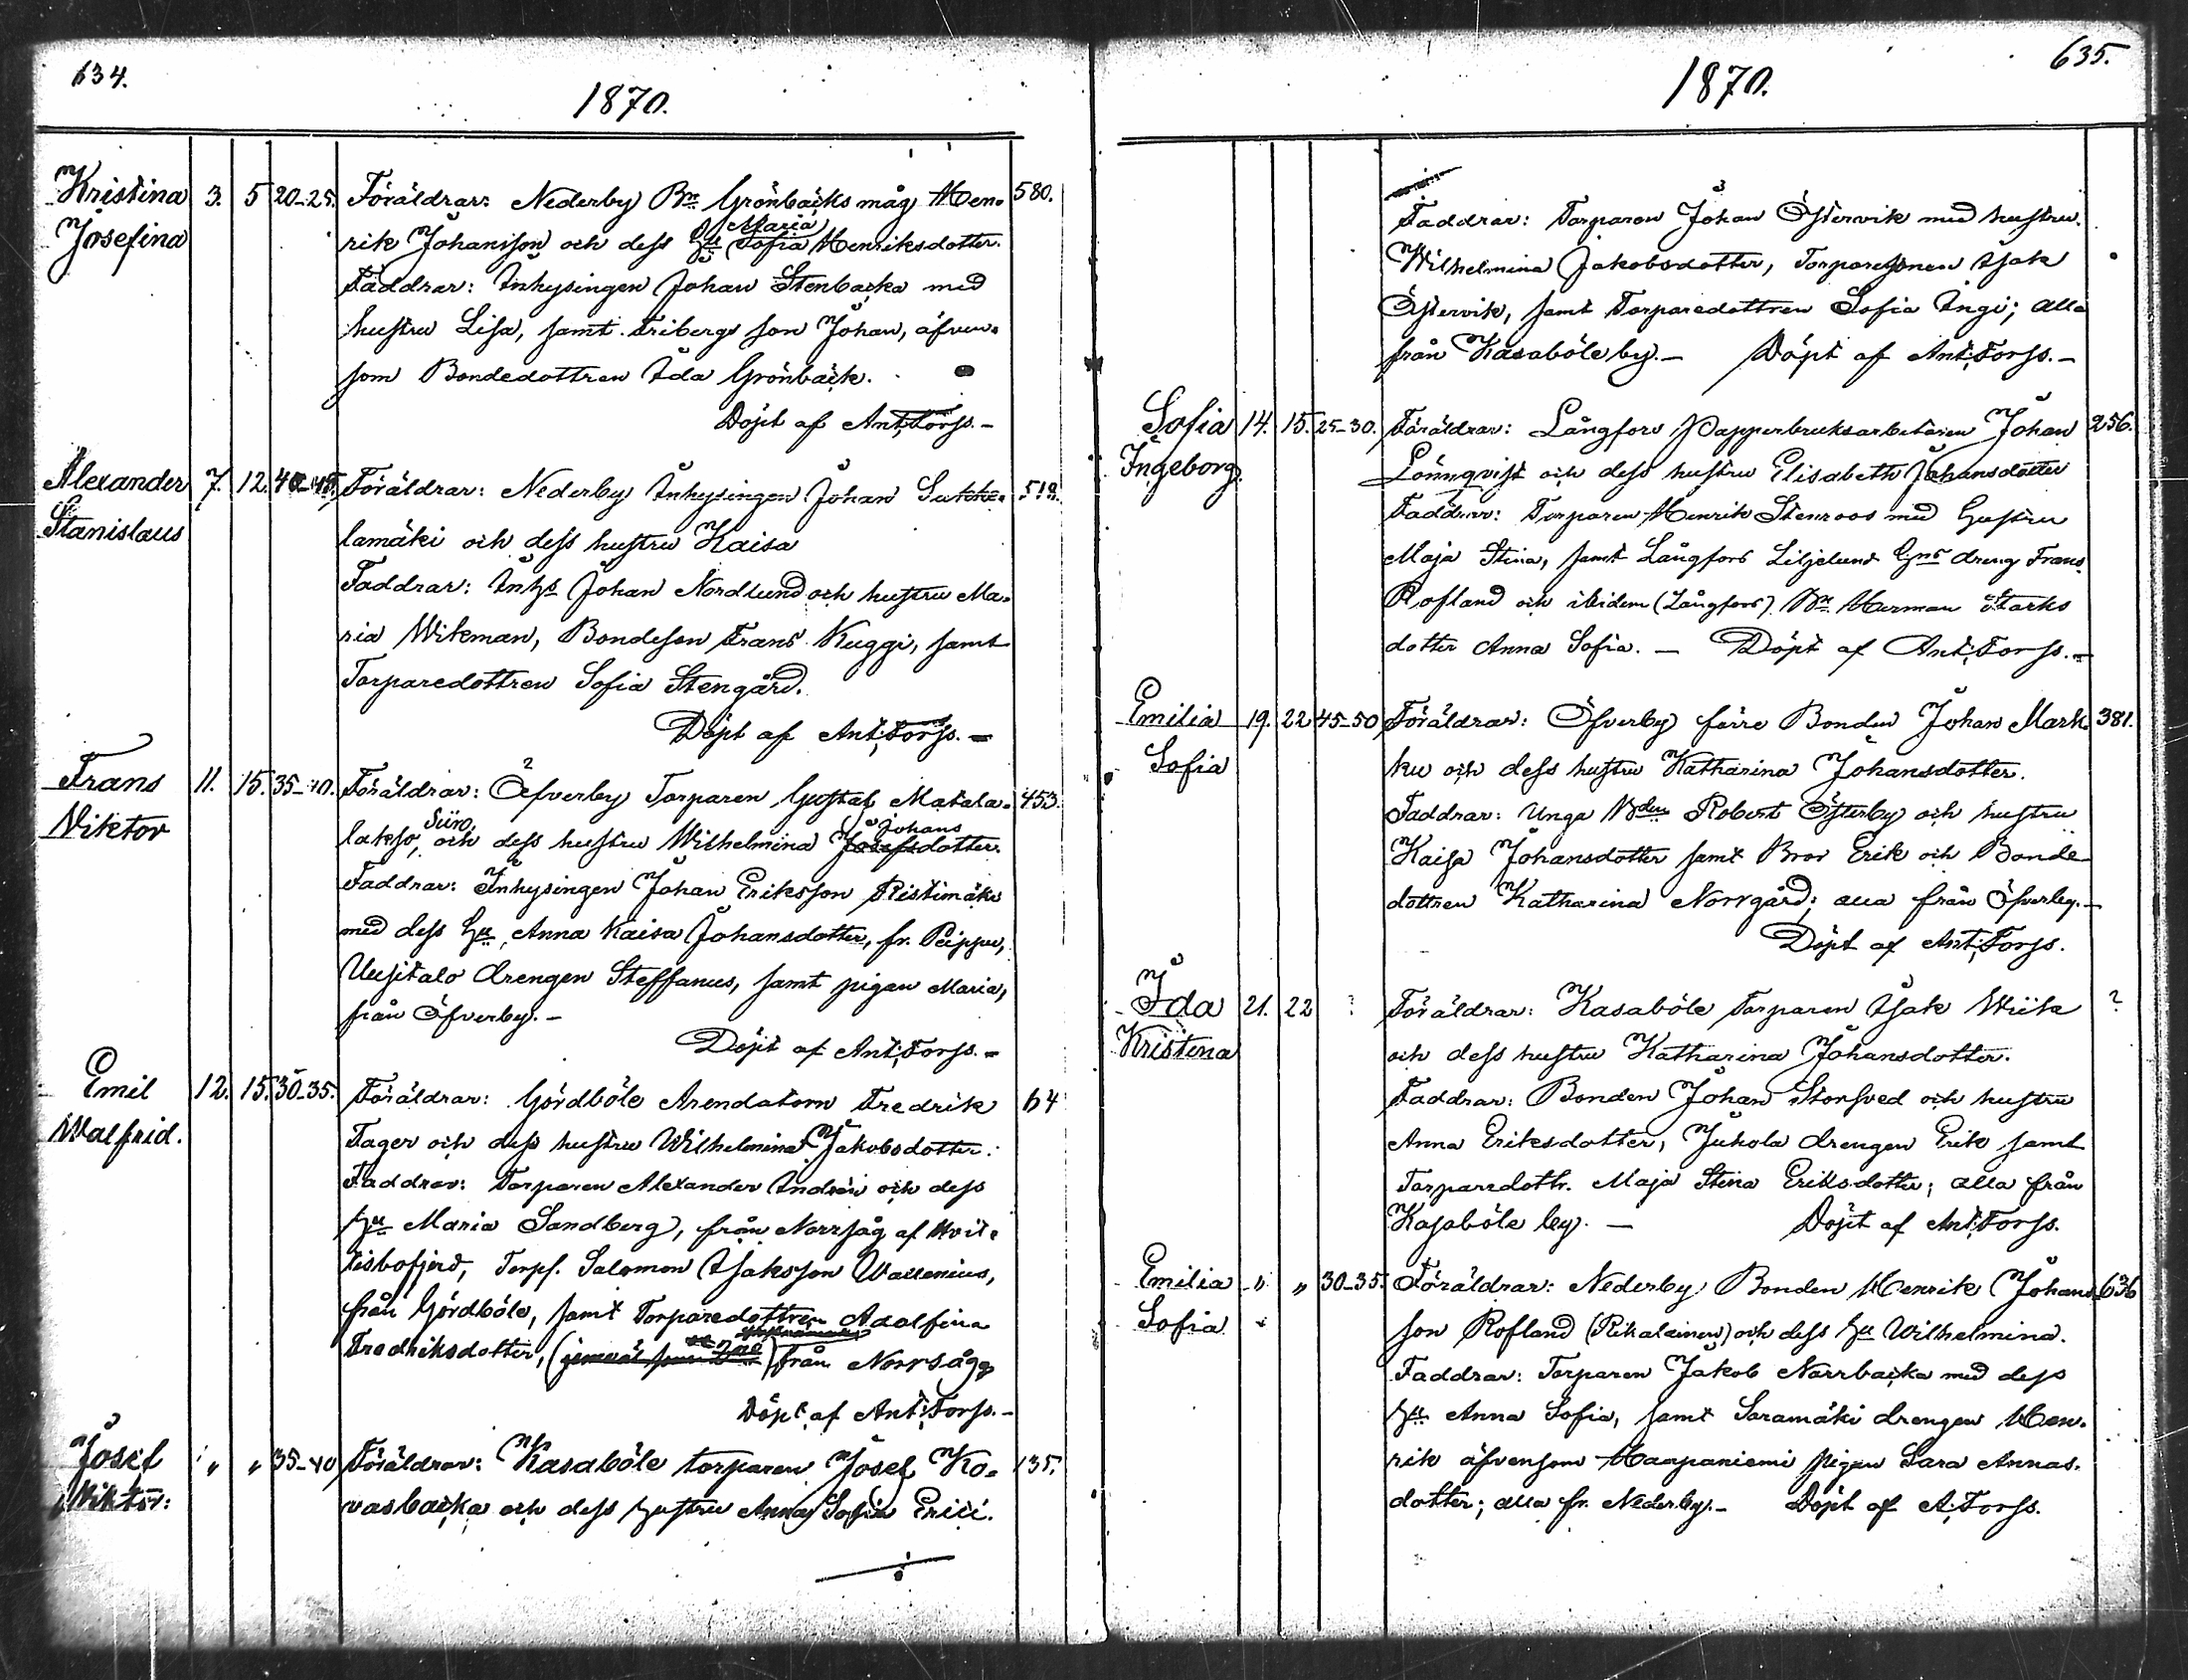 634.
1870.
Kristina 3. 5 20-25. Föräldrar: Nederby Bn Grönbacks måg Hen- 580.
Josefina rik Johansson och dess Hu Maria Sofia Henriksdotter.
Faddrar: Inhysingen Johan Stenbacka med
hustru Lisa, samt Fribergs son Johan, äfven-
som Bondedottren Ida Grönback.
Döpt af Ant. Forss.-
Alexander 7. 12. 40-45. Föräldrar: Nederby Inhysingen Johan 519.
Stanislaus lamäki och dess hustru Kaisa
Faddrar: Inhs Johan Nordlund och hustru Ma-
ria Wikman, Bondeson Frans Kuggi, samt
Torparedottren Sofia Stengård.
Döpt af Ant. Forss.-
Frans 11. 15. 35-40. Föräldrar: Öfverby Torparen Gustaf Matala- 453.
Viktor lakso, Siiro, och dess hustru Wilhelmina Johans Josefsdotter.
Faddrar: Inhysingen Johan Eriksson Ristimäki
med dess Hu, Anna Kaisa Johansdotter, fr. Peippu,
Uusitalo drengen Steffanus, samt pigan Maria,
från Öfverby.-
Döpt af Ant. Forss.-
Emil 12. 15. 30-35. Föräldrar: Gördböle Arendatorn Fredrik 64
Walfrid. Fager och dess hustru Wilhelmina Jakobsdotter.
Faddrar: Torparen Alexander Andrén och dess
Hu Maria Sandberg, från Norrsåg af Hvit-
tisbofjerd, Torps. Salomon Isaksson Wallenius,
från Gördböle, samt Torparedottren Adolfina
Fredriksdotter, från Norrsågg
Döpt af Ant. Forss.-
Josef " " 35-40 Föräldrar: Kasaböle torparen Josef Ko- 135.
Viktor: vasbacka och dess hustru Anna Sofia Erici.
635.
1870.
Faddrar: Torparen Johan Östervik med hustru
Wilhelmina Jakobsdotter, Torparesonen Isak
Östervik, samt Torparedottren Sofia Ingi; alla
från Kasaböle by.- Döpt af Ant. Forss.-
Sofia 14. 15. 25-30. Föräldrar: Långfors Papperbruksarbetaren Johan 256.
Ingeborg. Lönnqvist och dess hustru Elisabeth Johansdotter
Faddrar: Torparen Henrik Stenroos med Hustru
Maja Stina, samt Långfors Liljelund Gns dreng Frans
Rofland och ibidem (Långfors) Bn Herman Starks
dotter Anna Sofia. - Döpt af Ant. Forss.-
Emilia 19. 22 45-50 Föräldrar: Öfverby förre Bonden Johan Mark- 381.
Sofia ku och dess hustru Katharina Johansdotter.
Faddrar: Unga Bden Robert Österby och hustru
Kaisa Johansdotter samt Bror Erik och Bonde
dottren Katharina Norrgård; alla från Öfverby.-
Döpt af Ant. Forss.
Ida 21. 22 ? Föräldrar: Kasaböle Torparen Isak Wiik ?
Kristina och dess hustru Katharina Johansdotter.
Faddrar: Bonden Johan Storsved och hustru
Anna Eriksdotter, Jukola drengen Erik samt
Torparedottr. Maja Stina Eriksdotter; alla från
Kasaböle by. - Döpt af Ant. Forss.
Emilia " " 30-35. Föräldrar: Nederby Bonden Henrik Johans- 636
Sofia son Rofland (Rikalainen) och dess Hu Wilhelmina.
Faddrar: Torparen Jakob Norrbacka med dess
Hu Anna Sofia, samt Saramäki drengen Hen-
rik äfvensom Haapaniemi pigan Sara Annas-
dotter; alla fr. Nederby.- Döpt af A. Forss.